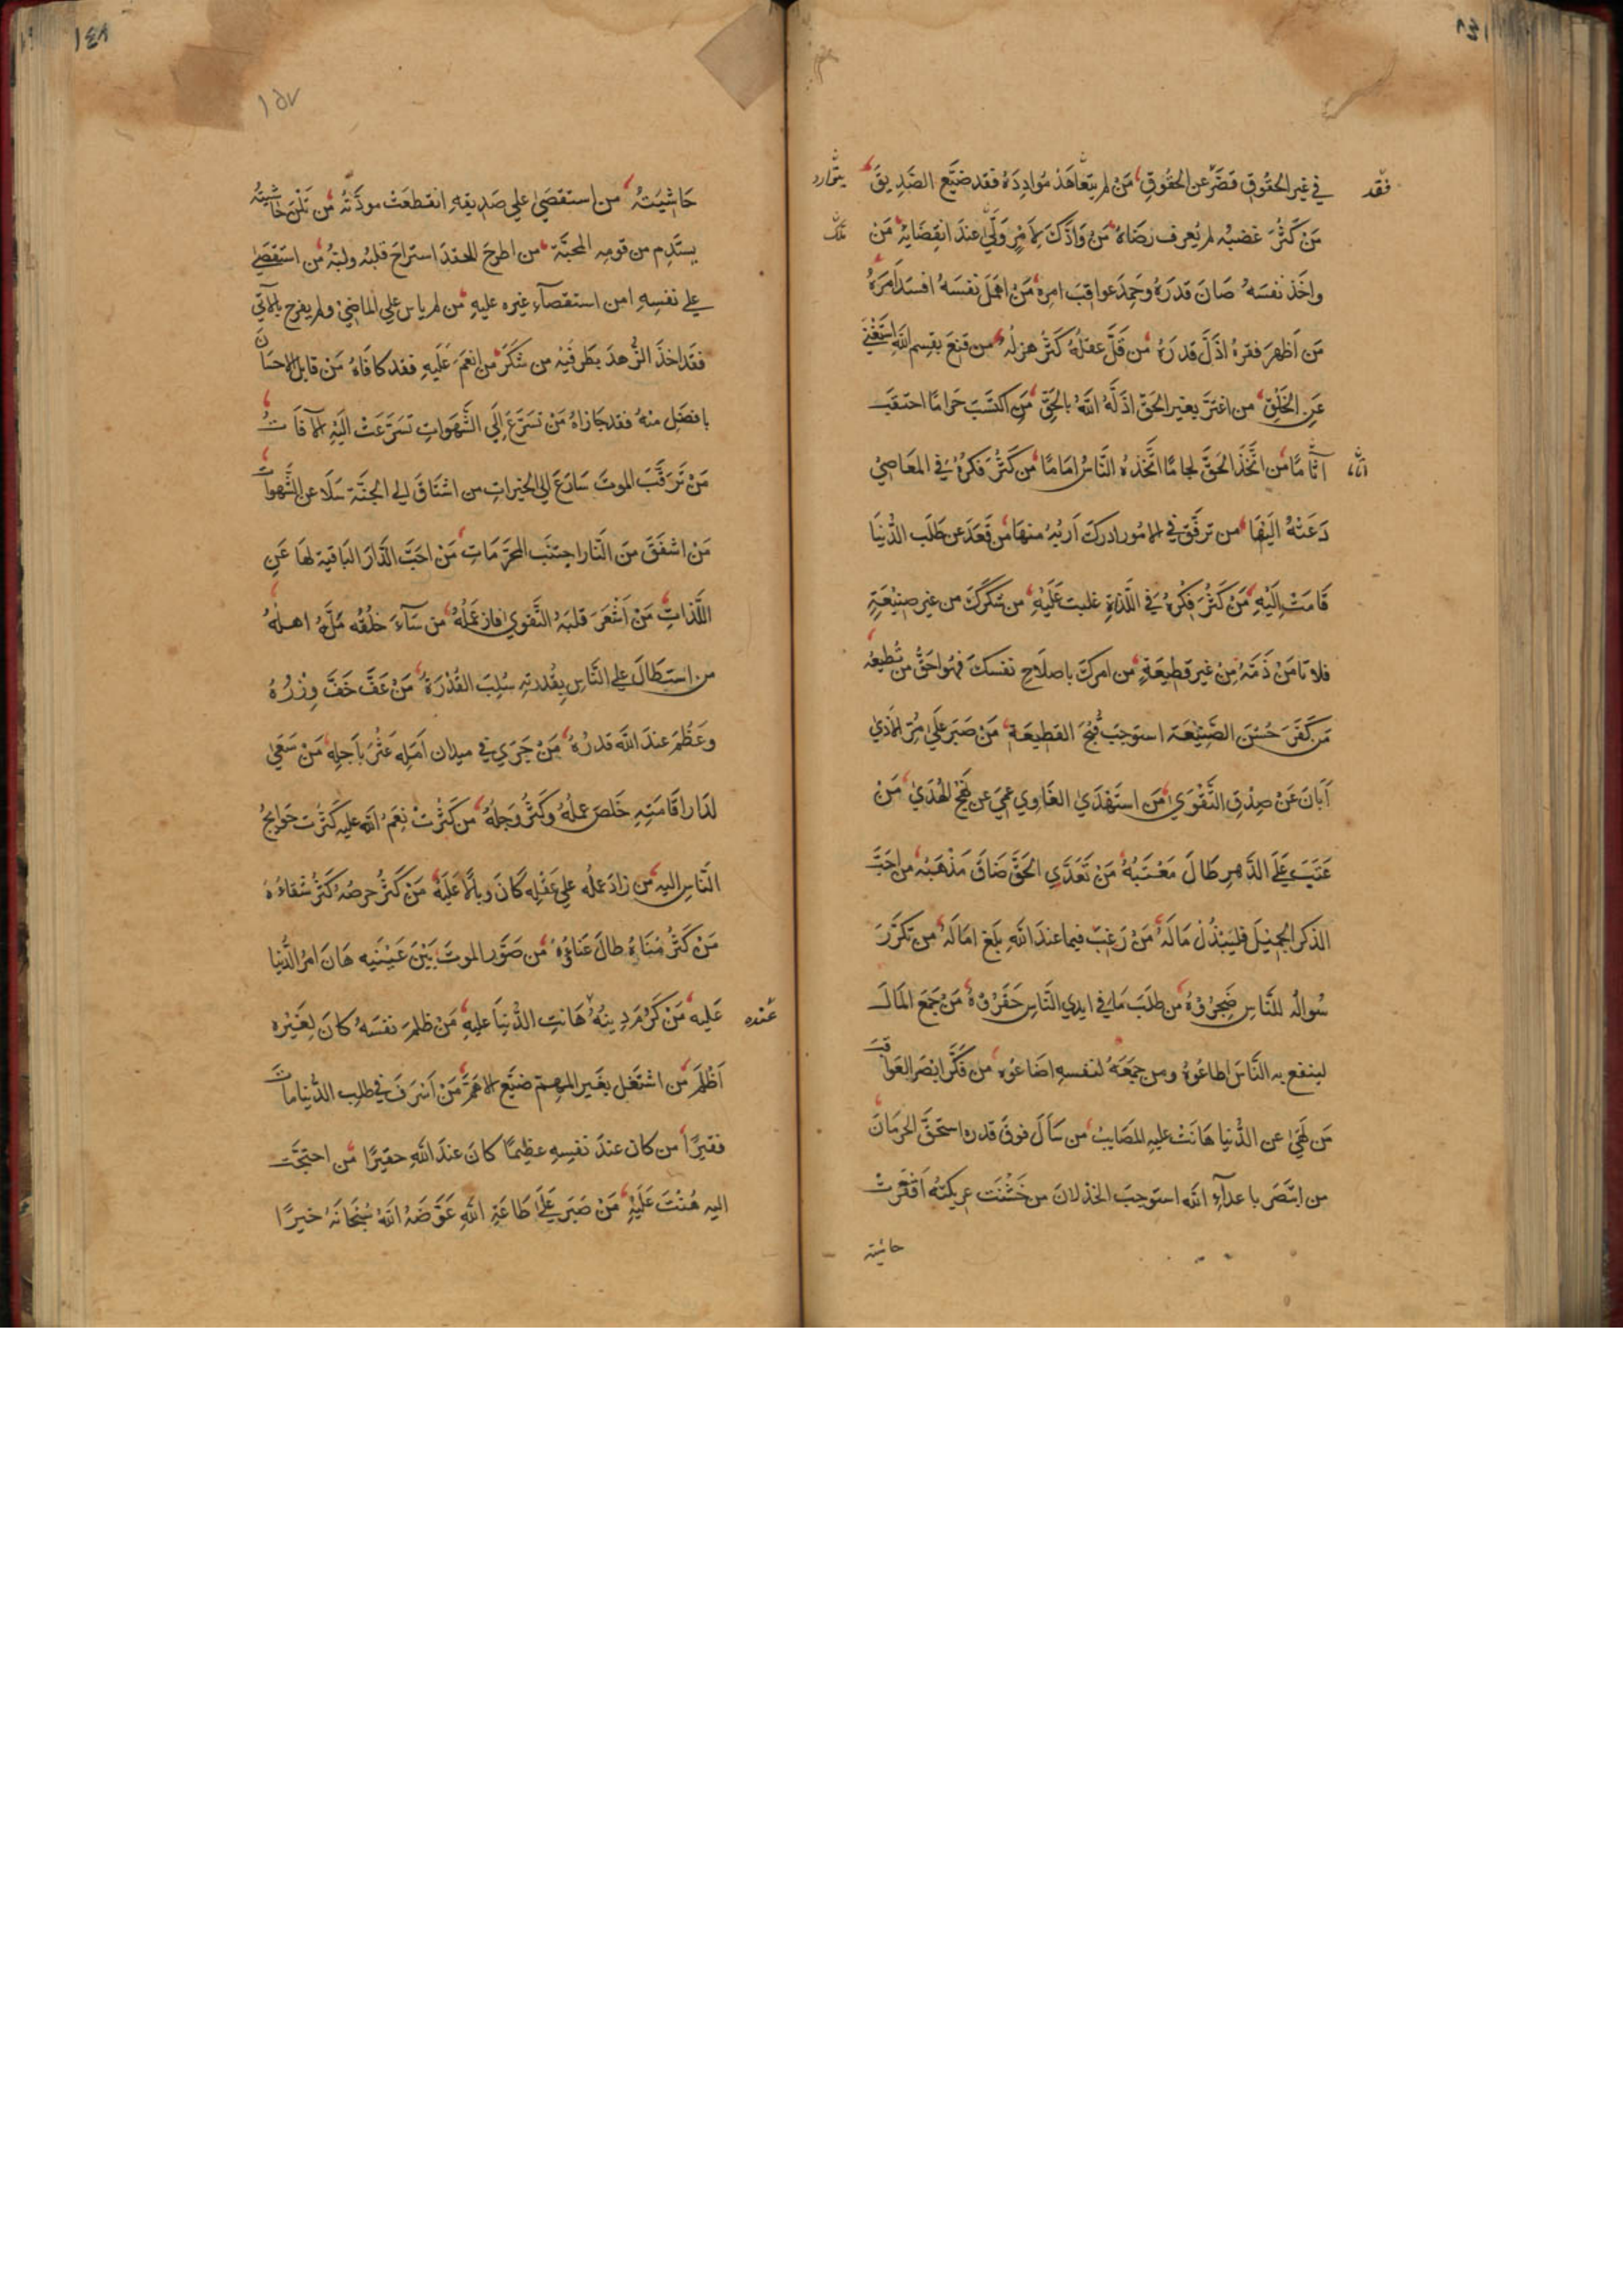 في غير الحقوق قصّر عن الحقوق من لم يتعاهد موادده فقد ضيّع الصّديق
من كثر غضبه لم يعرف رضاه من وادّك لامر ولّي عند انقضايه من
واخذ نفسه صان قدره وحمد عواقب امره من اهمل نفسه افسد امره
من اظهر فقره اذلّ قدره من قلّ عقله كثر هزله من قنع بقسم الله استغني
عن الخلق من اعتزّ بغير الحقّ اذلّه الله بالحقّ من اكتسب حراما احتقب
آثاما من اتّخذ الحقّ لجاما اتّخذه النّاس اماما من كثر فكره في المعاصي
دعته اليها من ترفّق في الامور ادرك اربه منها من قعد عن طلب الدّنيا
قامت اليه من كثر فكره في اللّذة غلبت عليه من شكرك من غير صنيعة
فلا تامن ذمّه من غير قطيعة من امرك باصلاح نفسك فهو احقّ من تطيعه
من كفر حسن الصّنيعة استوجب قبح القطيعة من صبر علي مرّ الاذي
ابان عن صدق التّقوي من استهدي الغاوي عمي عن نهج الهدي من
عتب علي الدّهر طال معتبه من تعدّي الحقّ ضاق مذهبه من احبّ
الذكر الجميل فليبذل ماله من رغب فيما عند الله بلغ اماله من تكرّر
سواله للنّاس ضجروه من طلب ما في ايدي النّاس حقروه من جمع المال
لينفع به النّاس اطاعوه ومن جمعه لنفسه اضاعوه من فكّر ابصر العواقب
من لهي عن الدّنيا هانت عليه المصايب من سال فوق قدره استحقّ الحرمان
من انتصر باعدآء الله استوجب الخذلان من خشنت عريكته افقرت
حاشيته
فقد
يتوارد
١٤٨
حاشيته من استقصي علي صديقه انقطعت مودّته من تلن حاشيته
يستدم من قومه المحبّة من اطرح الحقد استراح قلبه ولبّه من استقصي
علي نفسه امن استقصآء غيره عليه من لم ياس علي الماضي ولم يفرح بالآتي
فقد اخذ الزّهد بطرفيه من شكر من انعم عليه فقد كافاه من قابل الاحسان
بافضل منه فقد جازاه من تسرّع الي الشّهوات تسرّعت اليه الآفات
من ترقّب الموت سارع الي الخيرات من اشتاق الي الجنّة سلا عن الشّهوات
من اشفق من النّار اجتنب المحرّمات من احبّ الدّار الباقية لها عن
اللّذات من اشعر قلبه التّقوي فاز عمله من سآء خلقه ملّه اهله
من استطال علي النّاس بقدرته سلب القدرة من عفّ خفّ وزره
وعظم عند الله قدره من جري في ميدان امله عثر باجله من سعي
لدار اقامته خلص عمله وكثر وجله من كثرت نعم الله عليه كثرت حوايج
النّاس اليه من زاد علمه علي عقله كان وبالا عليه من كثر حرصه كثر شقاءه
من كثر مناه طال عناؤه من صوّر الموت بين عينيه هان امر الدّنيا
عليه من كرم دينه هانت الدّنيا عليه من ظلم نفسه كان لغيره
اظلم من اشتغل بغير المهمّ ضيّع الاهمّ من اسرف في طلب الدّنيا مات
فقيرا من كان عند نفسه عظيما كان عند الله حقيرا من احتجت
اليه هنت عليه من صبر علي طاعة الله عوّضه الله سبحانه خيرا
عنده
١٥٧
١٤٨